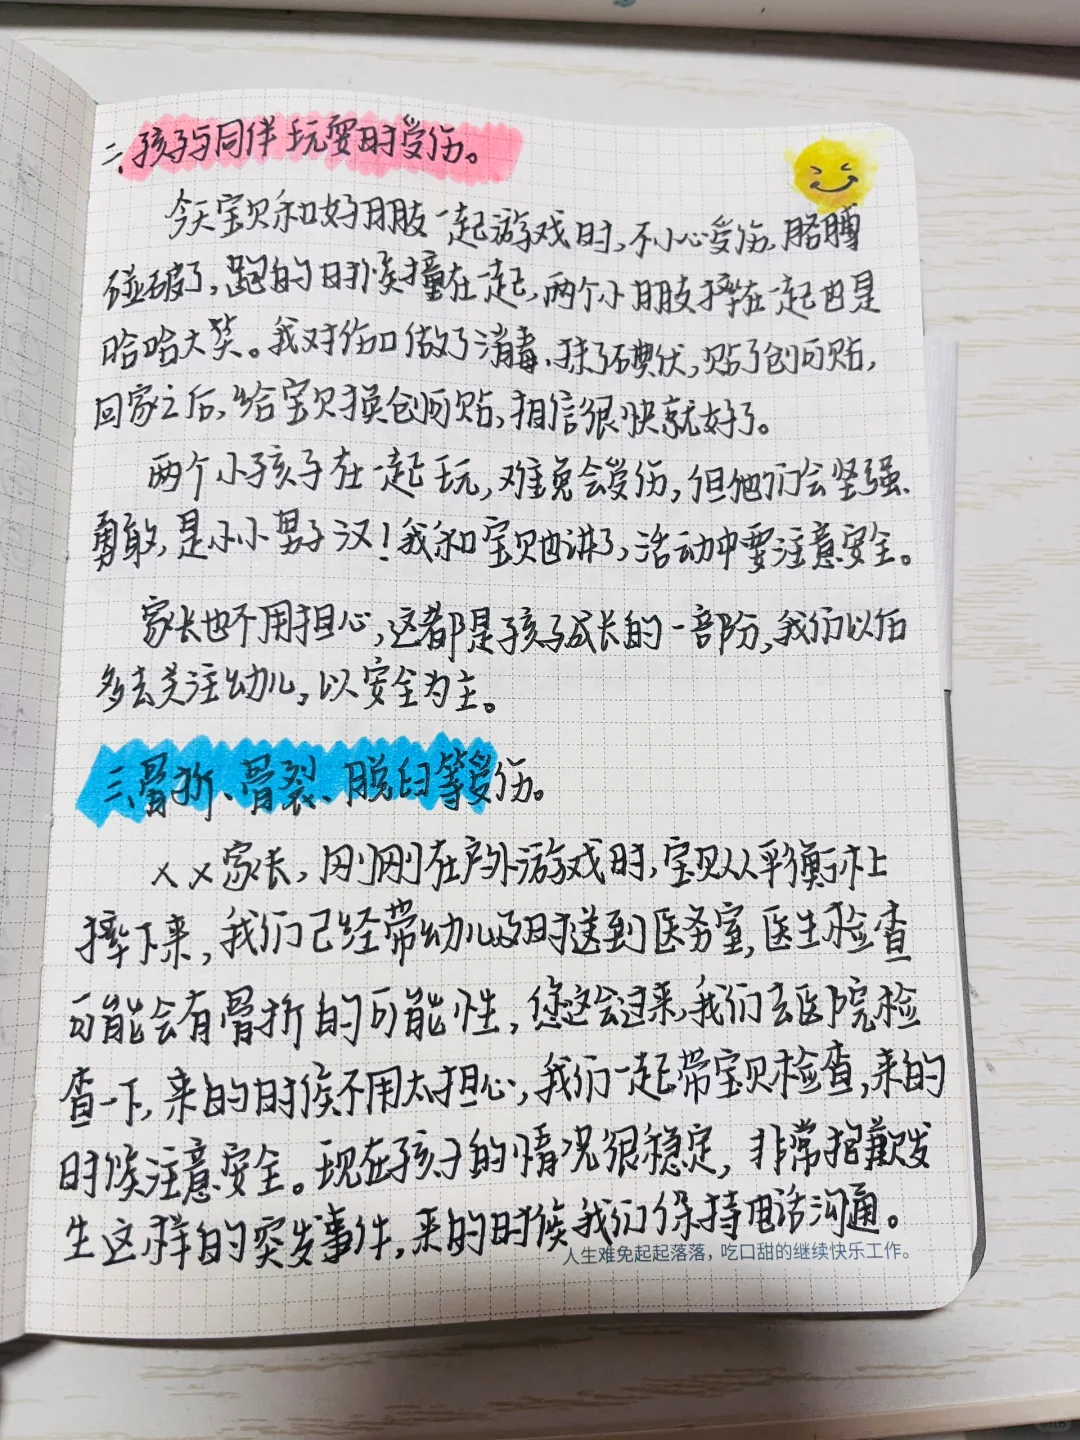 二、孩子与同伴玩耍时受伤。
今天宝贝和好朋友一起游戏时，不小心受伤，胳膊
碰破了，跑的时候撞在一起，两个小朋友摔在一起也是
哈哈大笑。我对伤口做了消毒、抹了碘伏，贴了创可贴，
回家之后，给宝贝换创可贴，相信很快就好了。
两个小孩子在一起玩，难免会受伤，但他们会坚强、
勇敢，是小小男子汉！我和宝贝也讲了，活动中要注意安全。
家长也不用担心，这都是孩子成长的一部份，我们以后
多去关注幼儿，以安全为主。
三、骨折、骨裂、脱臼等受伤。
××家长，刚刚在户外游戏时，宝贝从平衡木上
摔下来，我们已经带幼儿及时送到医务室，医生检查
可能会有骨折的可能性，您这会过来，我们去医院检
查一下，来的时候不用太担心，我们一起带宝贝检查，来的
时候注意安全。现在孩子的情况很稳定，非常抱歉发
生这样的突发事件，来的时候我们保持电话沟通。
人生难免起起落落，吃口甜的继续快乐工作。